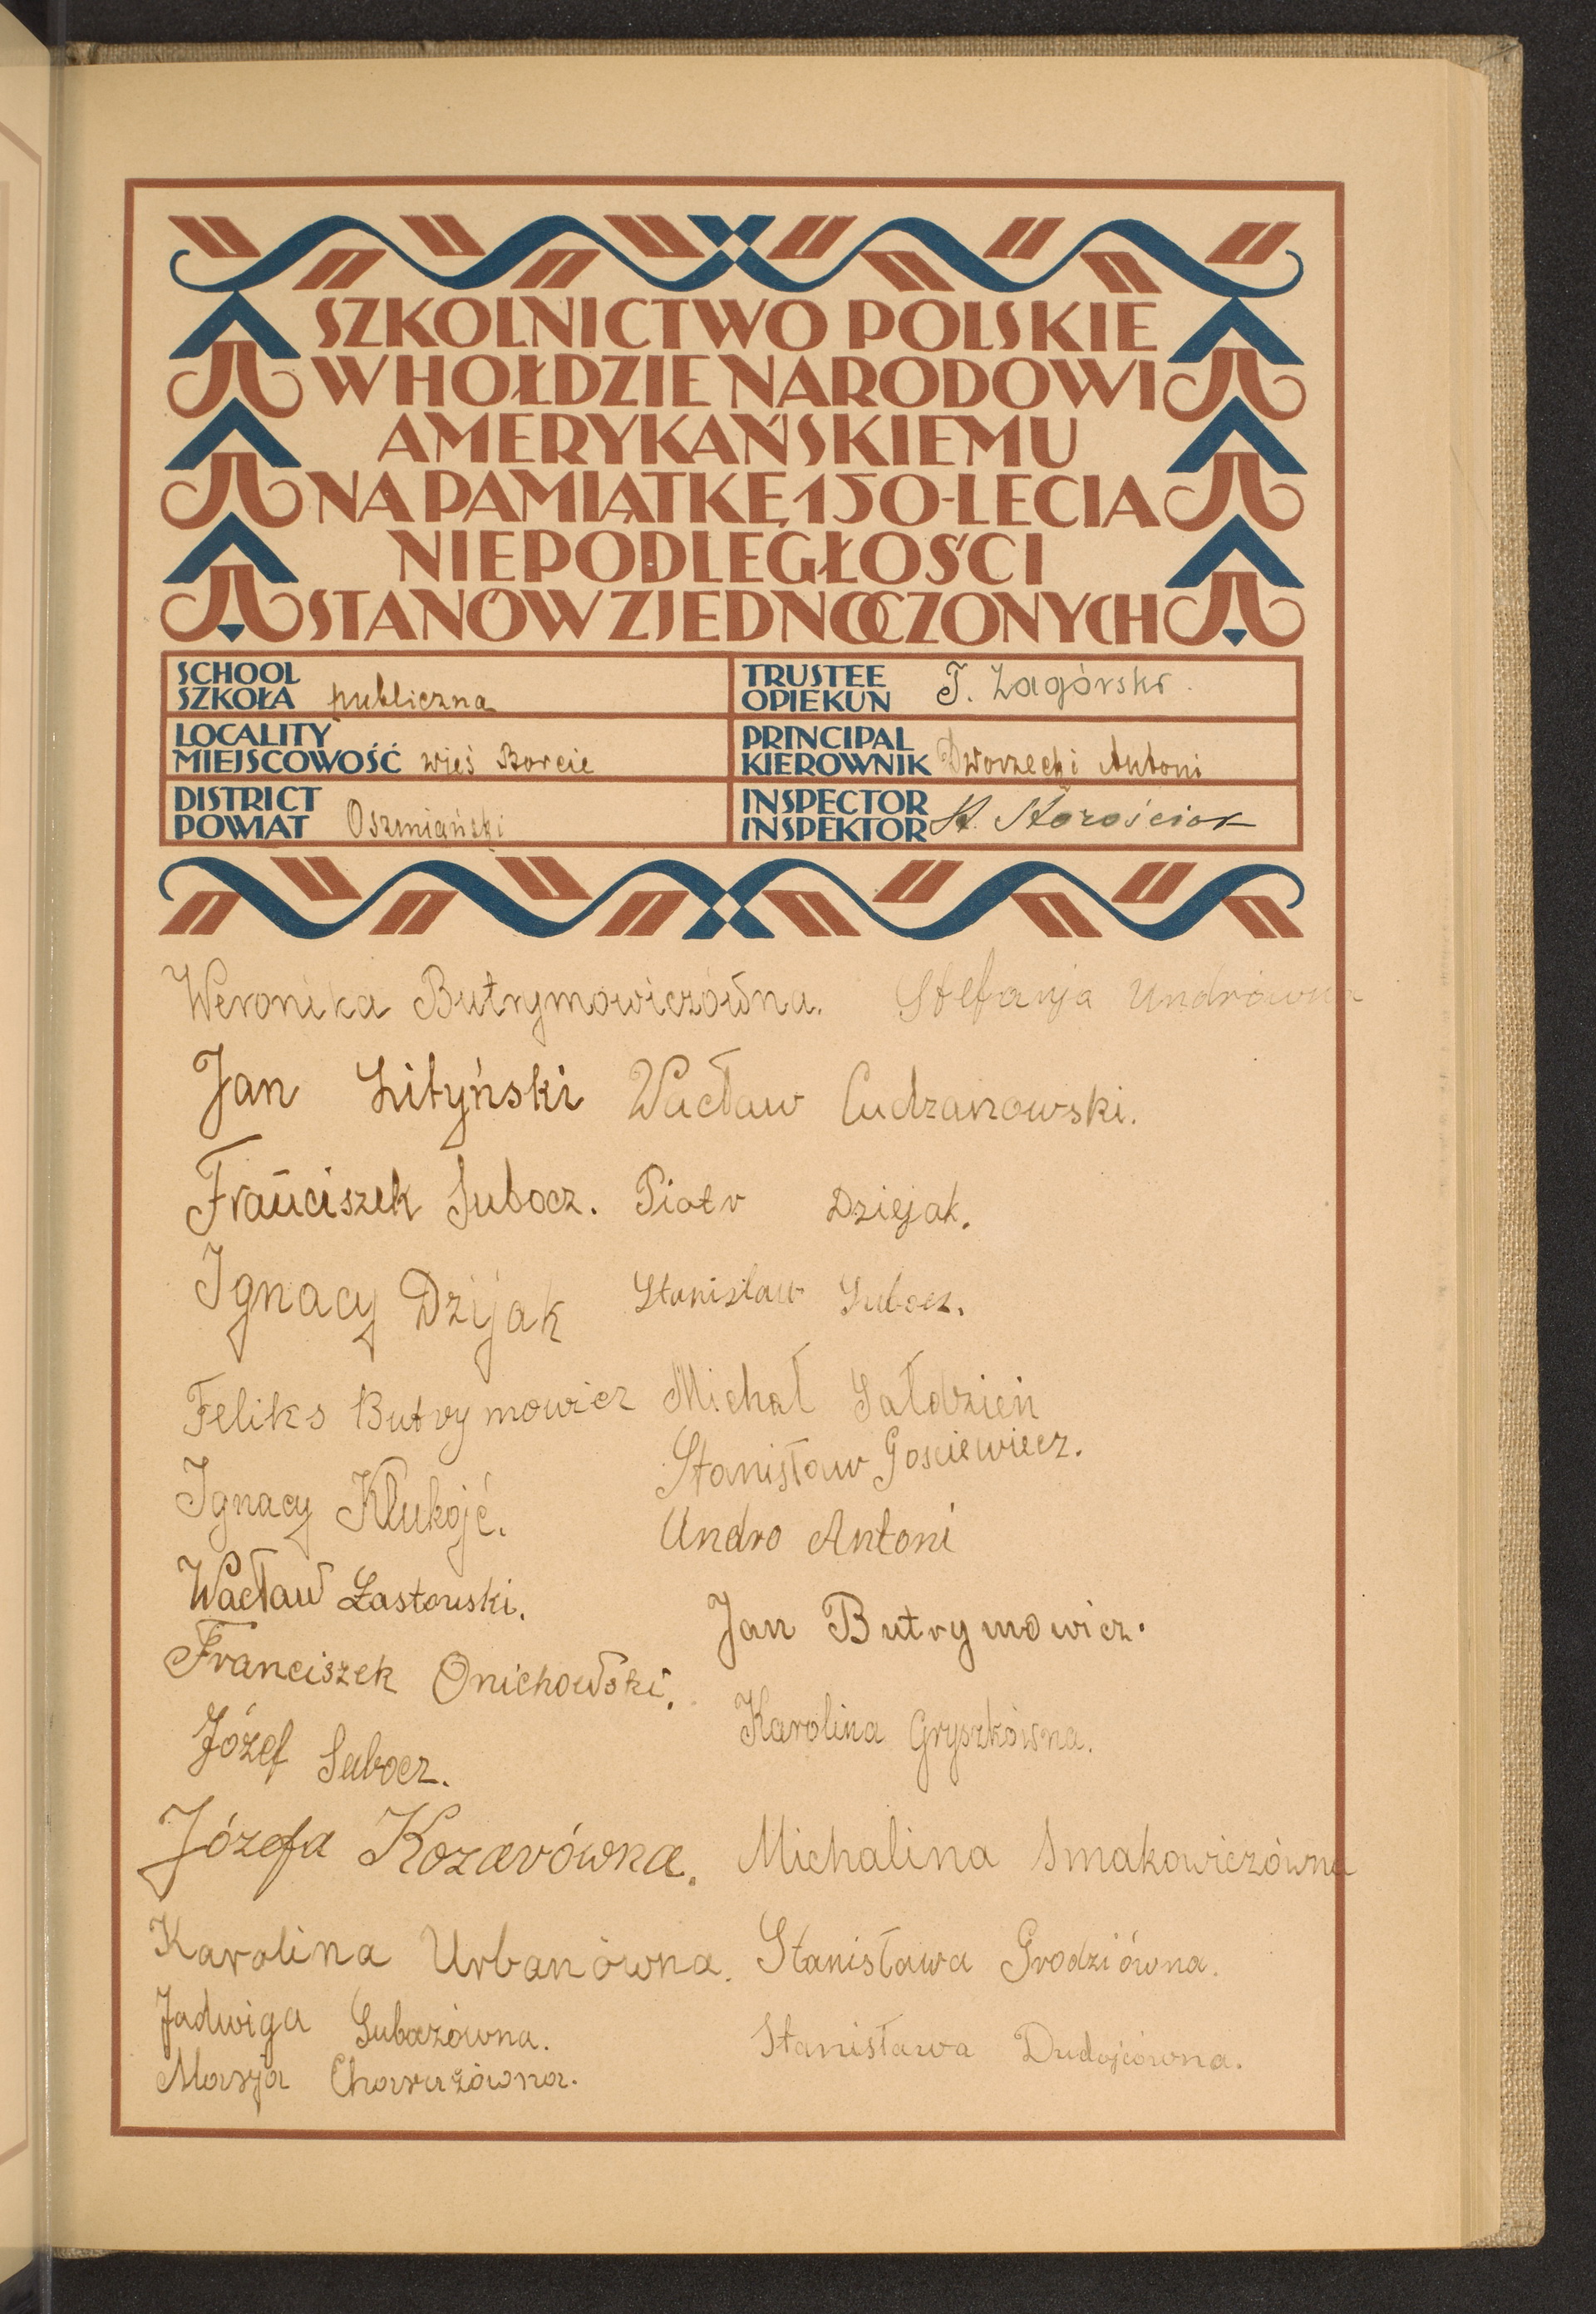 SZKOLNICTWO POLSKIE
W HOŁDZIE NARODOWI
AMERYKAŃSKIEMU
NA PAMIĄTKĘ 150-LECIA
NIEPODLEGŁOŚCI
STANÓW ZJEDNOCZONYCH
SCHOOL
SZKOŁA publiczna
TRUSTEE
OPIEKUN T. Zagórski
LOCALITY
MIEJSCOWOŚĆ wieś Borcie
PRINCIPAL
KIEROWNIK Dworzecki Antoni
DISTRICT
POWIAT Oszmiański
INSPECTOR
INSPEKTOR St. Starościak
Weronika Butrymowiczówna. Stefanja Undrówna
Jan Lityński Wacław Cudzanowski.
Franciszek Subocz. Piotr Dziejak.
Ignacy Dzijak Stanisław Subocz.
Feliks Butrymowicz Michał Sałdzień
Ignacy Klukojć. Stanisław Gościewiecz.
Undro Antoni
Wacław Łastowski. Jan Butrymowicz.
Franciszek Onichowski.
Karolina Gryszkówna.
Józef Subocz.
Józefa Kozarówna. Michalina Smakowiczówna
Karolina Urbanówna. Stanisława Grodziówna.
Jadwiga Suboczówna. Stanisława Dudojciówna.
Marja Charużówna.